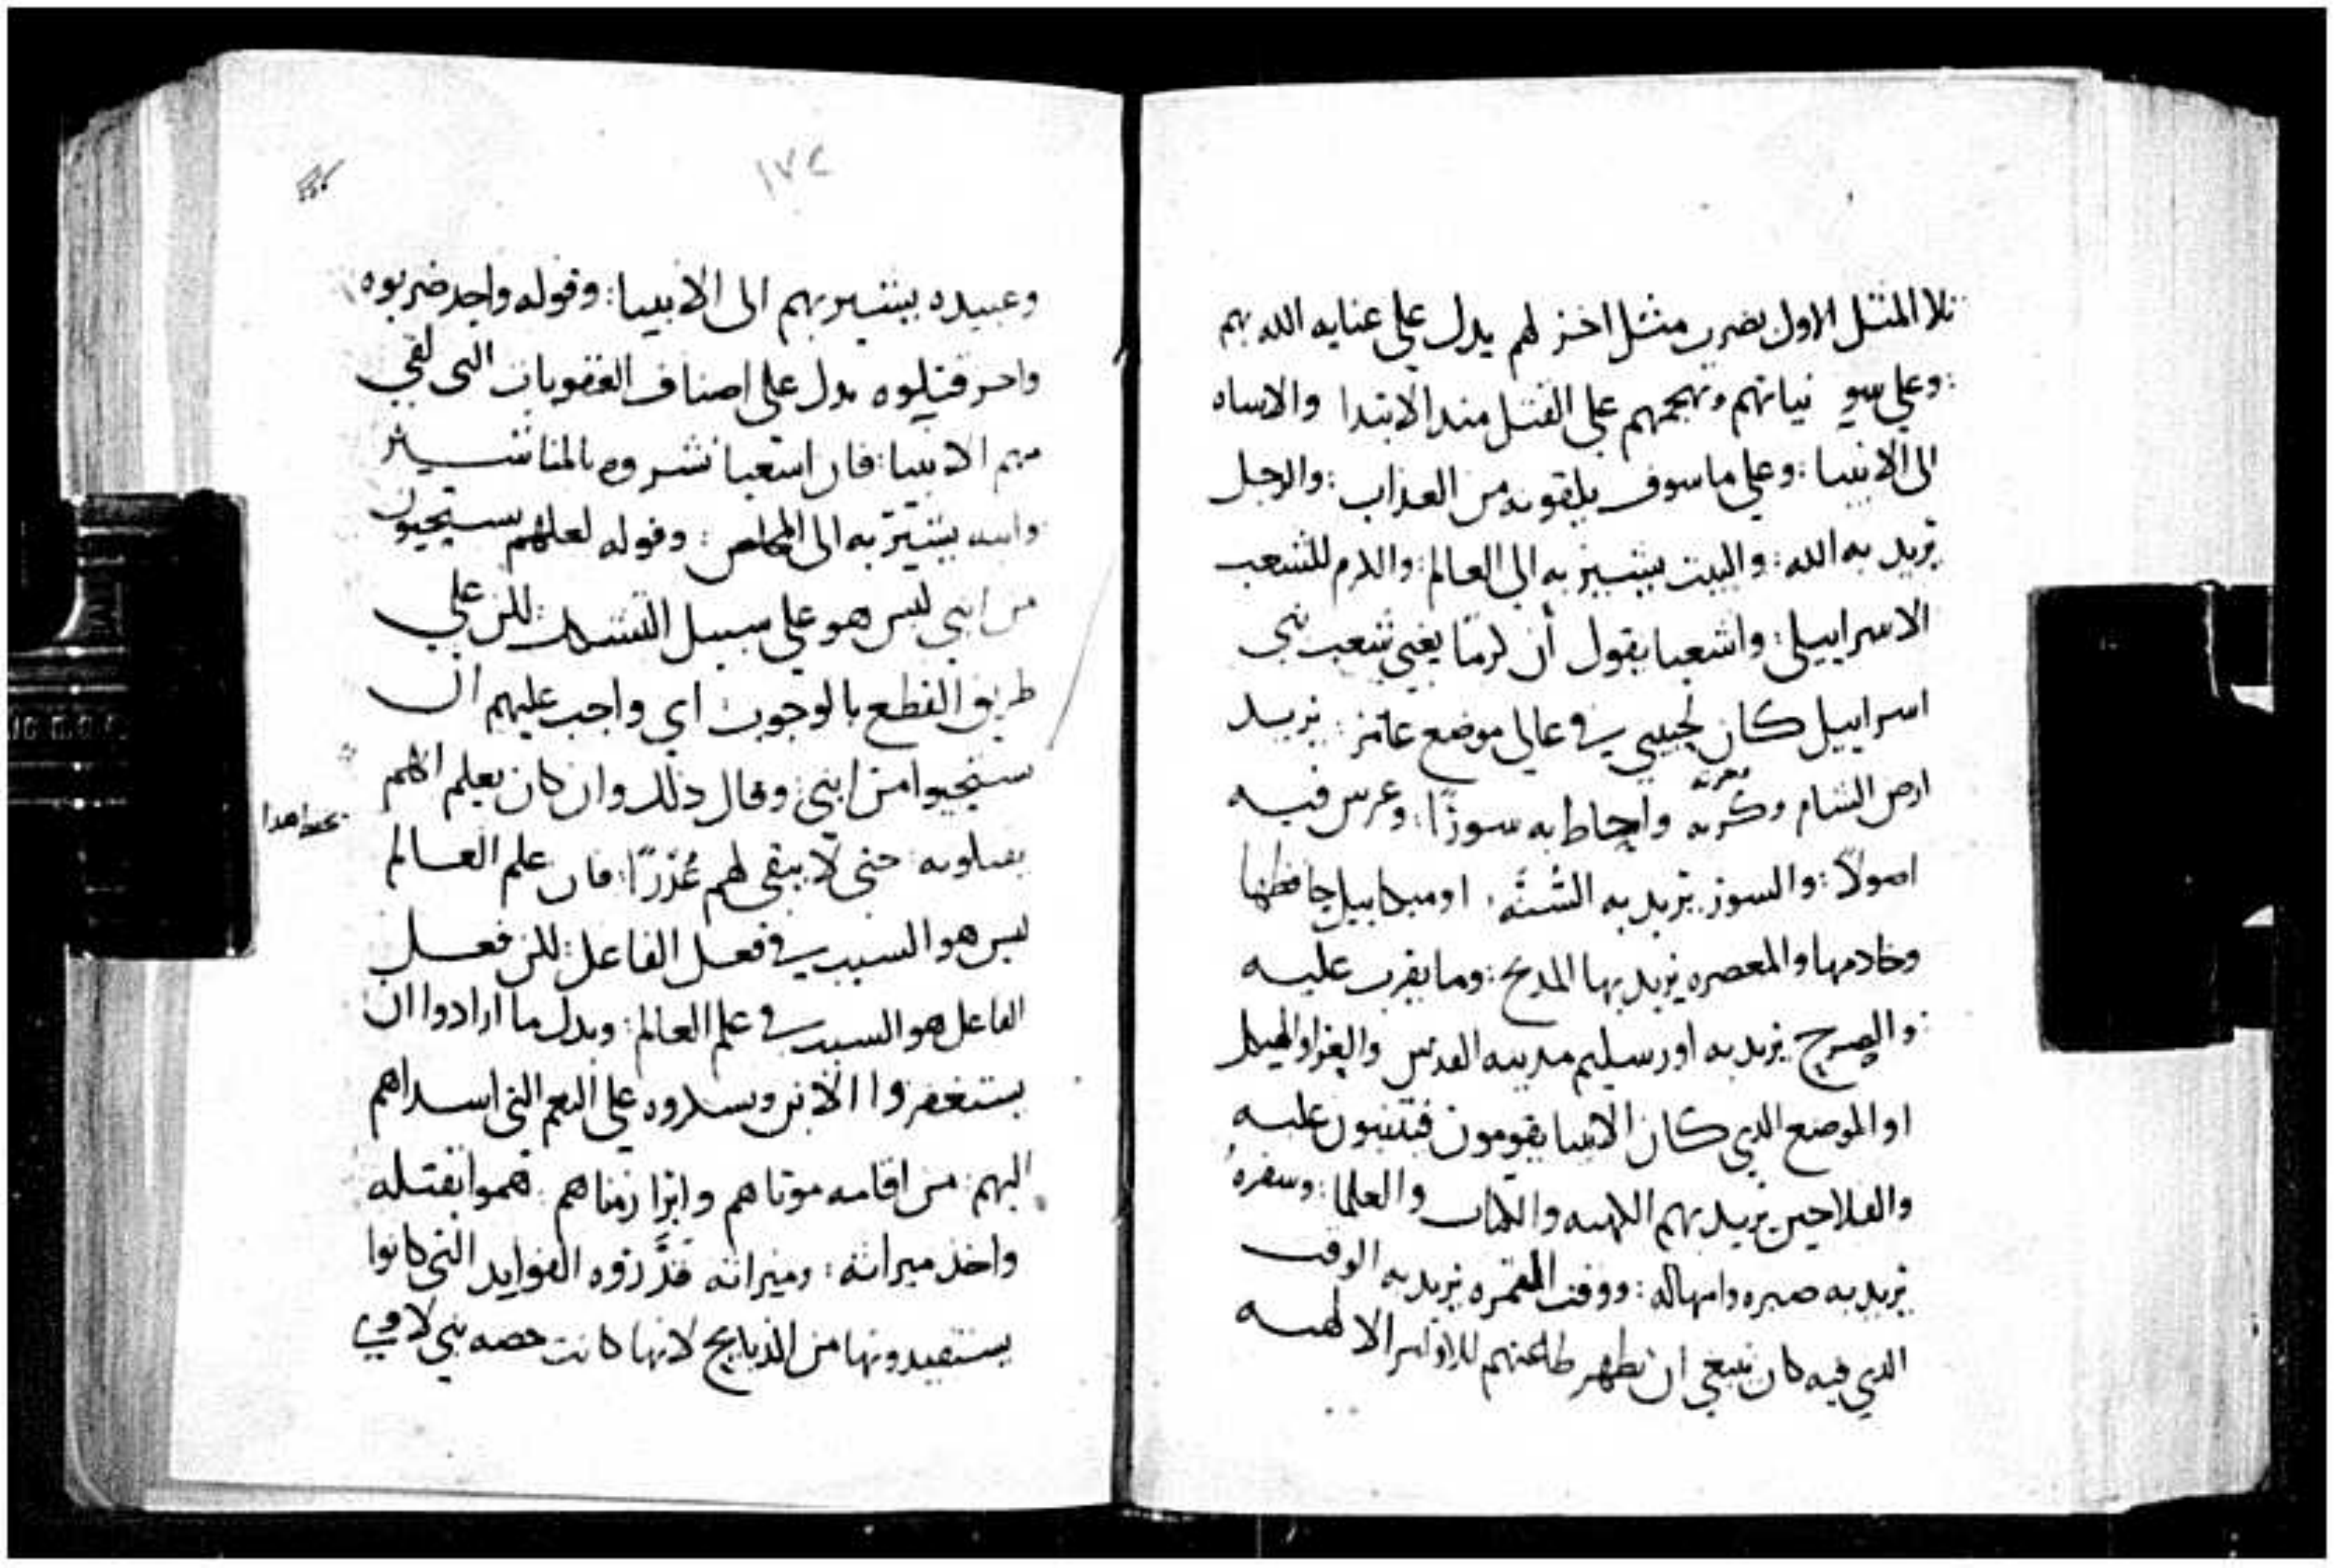 تلا المثل الاول بضرب مثل اخر لهم يدل على عنايه الله بهم
: وعلى سو نياتهم وتهجمهم على القتل منذ الابتدا والاساه
الى الانبيا : وعلى ما سوف يلقونه من العذاب : والرجل
يريد به الله : والبيت يشير به الى العالم : والكرم للشعب
الاسراييلي : واشعيا يقول أن كرمًا يعني شعب بني
اسراييل كان لحبيبي في عالي موضع عامر : يريد
ارض الشام وكَرَبه واحاط به سورًا : وغرس فيه
اصولاً : والسور يريد به السُنَّه . او ميكاييل حافظها
وخادمها والمعصره يريد بها المذبح : وما يقرب عليه
: والصرح يريد به اورسليم مدينه القدس والهيكل
او الموضع الذي كان الانبيا يقومون فيتنبون عليه
والفلاحين يريد بهم الكهنه والكتاب والعلما : وسفره
يريد به صبره وامهاله : ووقت الثمره يريد به الوقت
الذي فيه كان ينبغي ان تظهر طاعتهم للاوامر الالهيه
١٧٤
وعبيده يشير بهم الى الانبيا : وقوله واحد ضربوه
واحر قتلوه يدل على اصناف العقوبات التي لقي
منهم الانبيا : فان اشعيا نشروه بالمناشير
وابنه يشير به الى المخلص : وقوله لعلهم يستحيون
من ابني ليس هو على سبيل التشكك : لكن على
طريق القطع بالوجوب اي واجب عليهم ان
يستحيوا من ابني : وقال ذلك وان كان يعلم انهم
يقتلونه : حتى لا يبقى لهم عُذرًا : فان علم العالم
ليس هو السبب في فعل الفاعل : لكن فعل
الفاعل هو السبب في علم العالم : وبدل ما ارادوا ان
يستغفروا الابن ويشكروه على النعم التي اسداها
اليهم : من اقامه موتاهم وابرا زمناهم . هموا بقتله
واخذ ميراثه : وميراثه قدَّروه الفوايد التي كانوا
يستفيدونها من الذبايح لانها كانت حصه بني لاوي